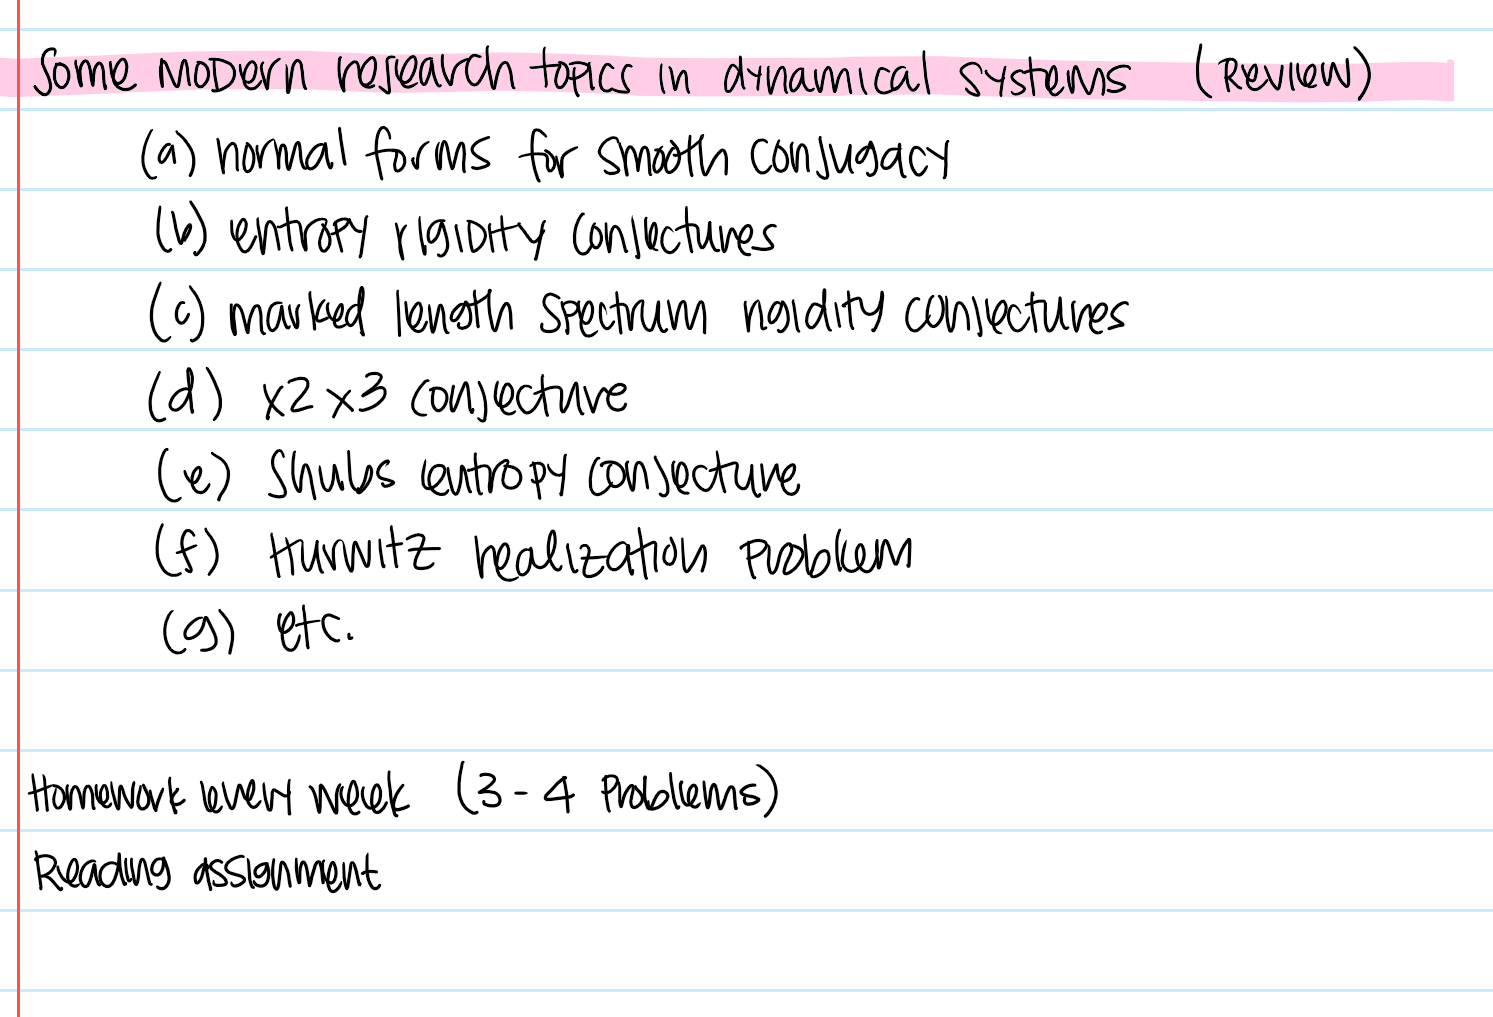 Some modern research topics in dynamical systems (Review)
(a) normal forms for smooth conjugacy
(b) entropy rigidity conjectures
(c) marked length spectrum rigidity conjectures
(d) x2x3 conjecture
(e) Shubs entropy conjecture
(f) Hurwitz realization problem
(g) etc.
Homework every week (3-4 problems)
Reading assignment